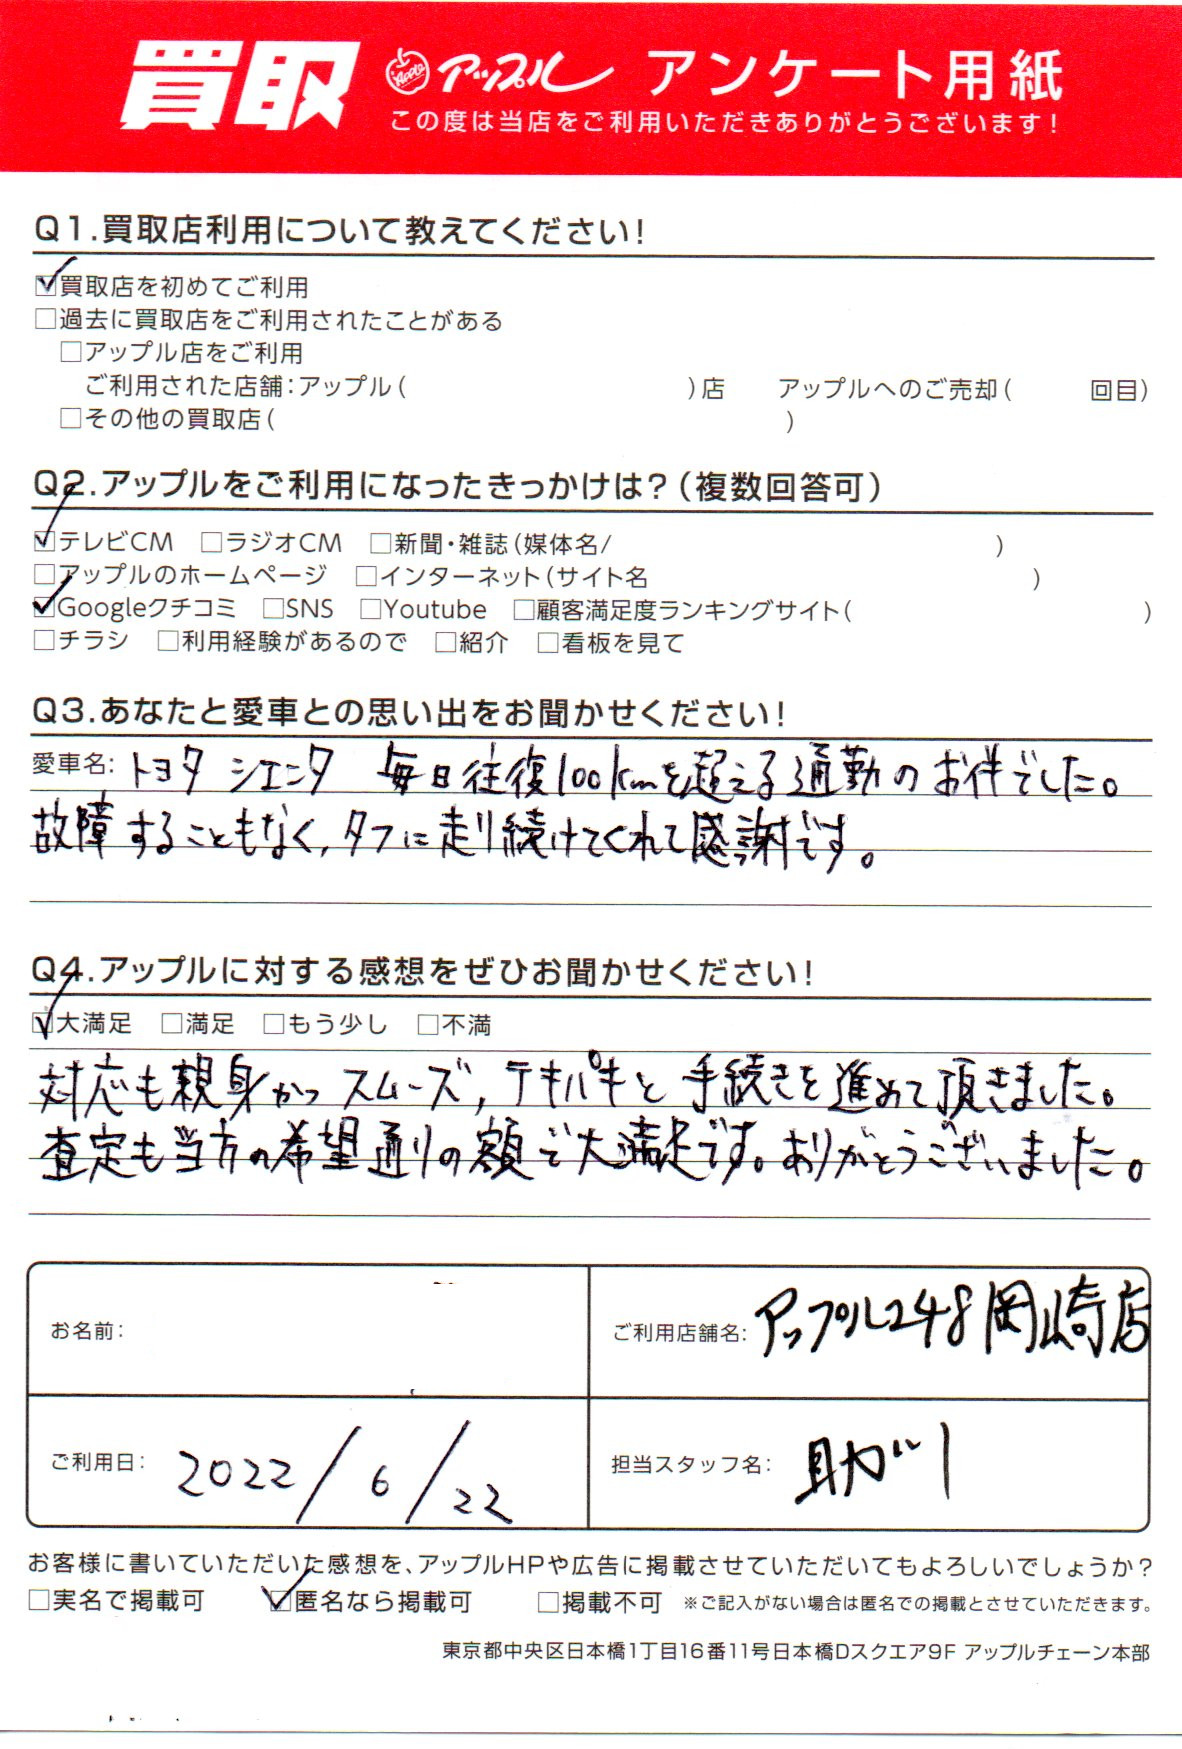 買取 Apple アップル アンケート用紙
この度は当店をご利用いただきありがとうございます!
Q1.買取店利用について教えてください!
☑買取店を初めてご利用
□過去に買取店をご利用されたことがある
□アップル店をご利用
ご利用された店舗:アップル( )店 アップルへのご売却( 回目)
□その他の買取店( )
Q2.アップルをご利用になったきっかけは?(複数回答可)
☑テレビCM □ラジオCM □新聞・雑誌(媒体名/ )
□アップルのホームページ □インターネット(サイト名 )
☑Googleクチコミ □SNS □Youtube □顧客満足度ランキングサイト( )
□チラシ □利用経験があるので □紹介 □看板を見て
Q3.あなたと愛車との思い出をお聞かせください!
愛車名: トヨタ シエンタ 毎日往復100kmを超える通勤のお伴でした。
故障することもなく,タフに走り続けてくれて感謝です。
Q4.アップルに対する感想をぜひお聞かせください!
☑大満足 □満足 □もう少し □不満
対応も親身かつスムーズ,テキパキと手続きを進めて頂きました。
査定も当方の希望通りの額で大満足です。ありがとうございました。
お名前:
ご利用店舗名: アップル248岡崎店
ご利用日: 2022/6/22
担当スタッフ名:
お客様に書いていただいた感想を、アップルHPや広告に掲載させていただいてもよろしいでしょうか?
□実名で掲載可 ☑匿名なら掲載可 □掲載不可 ※ご記入がない場合は匿名での掲載とさせていただきます。
東京都中央区日本橋1丁目16番11号日本橋Dスクエア9F アップルチェーン本部